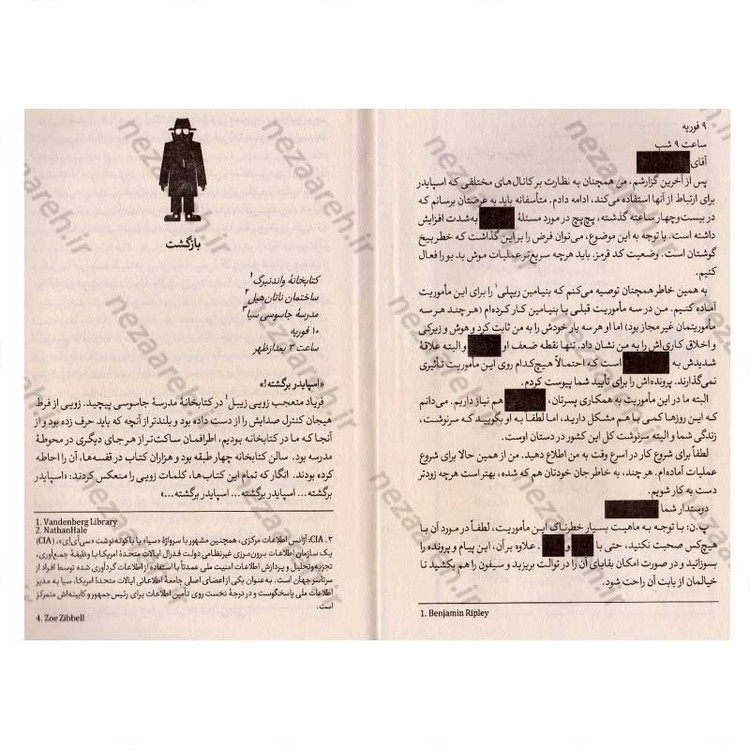 ۹ فوریه
ساعت ۹ شب
آقای
پس از آخرین گزارشم، من همچنان به نظارت بر کانال‌های مختلفی که اسپایدر
برای ارتباط از آنها استفاده می‌کند، ادامه دادم. متأسفانه باید به عرضتان برسانم که
در بیست‌وچهار ساعت گذشته، پچ‌پچ در مورد مسئلهٔ به‌شدت افزایش
داشته است. با توجه به این موضوع، می‌توان فرض را بر این گذاشت که خطر بیخ
گوشتان است. وضعیت کد قرمز. باید هرچه سریع‌تر عملیات موش بدبو را فعال
کنیم.
به همین خاطر همچنان توصیه می‌کنم که بنیامین ریپلی۱ را برای این مأموریت
آماده کنیم. من در سه مأموریت قبلی با بنیامین کار کرده‌ام (هرچند هر سه
مأموریتمان غیرمجاز بود) اما او هر سه بار خودش را به من ثابت کرد و هوش و زیرکی
و اخلاق کاری‌اش را به من نشان داد. تنها نقطه ضعف او و البته علاقهٔ
شدیدش به است که احتمالاً هیچ‌کدام روی این مأموریت تأثیری
نمی‌گذارند. پرونده‌اش را برای تأیید شما پیوست کردم.
البته ما در این مأموریت به همکاری پسرتان، هم نیاز داریم. می‌دانم
که این روزها کمی با هم مشکل دارید، اما لطفاً به او بگویید که سرنوشت،
زندگی شما و البته سرنوشت کل این کشور در دستان اوست.
لطفاً برای شروع کار در اسرع وقت به من اطلاع دهید. من از همین حالا برای شروع
عملیات آماده‌ام. هرچند، به خاطر جان خودتان هم که شده، بهتر است هرچه زودتر
دست به کار شویم.
دوستدار شما
پ.ن: با توجه به ماهیت بسیار خطرناک این مأموریت، لطفاً در مورد آن با
هیچ‌کس صحبت نکنید، حتی با و . علاوه بر آن، این پیام و پرونده را
بسوزانید و در صورت امکان بقایای آن را در توالت بریزید و سیفون را هم بکشید تا
خیالمان از بابت آن راحت شود.
1. Benjamin Ripley
بازگشت
کتابخانهٔ واندنبرگ۱
ساختمان ناتان‌هیل۲
مدرسهٔ جاسوسی سیا۳
۱۰ فوریه
ساعت ۳ بعدازظهر
«اسپایدر برگشته!»
فریاد متعجب زویی زیبل۴ در کتابخانهٔ مدرسهٔ جاسوسی پیچید. زویی از فرط
هیجان کنترل صدایش را از دست داده بود و بلندتر از آنچه که باید حرف زده بود و از
آنجا که ما در کتابخانه بودیم، اطرافمان ساکت‌تر از هر جای دیگری در محوطهٔ
مدرسه بود. سالن کتابخانه چهار طبقه بود و هزاران کتاب در قفسه‌ها، آن را احاطه
کرده بودند. انگار که تمام این کتاب‌ها، کلمات زویی را منعکس کردند: «اسپایدر
برگشته... اسپایدر برگشته... اسپایدر برگشته...»
1. Vandenberg Library
2. NathanHale
۳. CIA: آژانس اطلاعات مرکزی، همچنین مشهور با سرواژهٔ «سیا» یا باکوته‌نوشت «سی‌آی‌اِی»، (CIA)
یک سازمان اطلاعات برون‌مرزی غیرنظامی دولت فدرال ایالات متحدهٔ آمریکا با وظیفهٔ جمع‌آوری،
تجزیه‌وتحلیل و پردازش اطلاعات امنیت ملی عمدتاً با استفاده از اطلاعات گردآوری شده توسط افراد از
سرتاسر جهان است. به‌عنوان یکی از اعضای اصلی جامعهٔ اطلاعاتی ایالات متحدهٔ آمریکا، سیا به مدیر
اطلاعات ملی پاسخگوست و در درجهٔ نخست روی تأمین اطلاعات برای رئیس‌جمهور و کابینه‌اش متمرکز
است.
4. Zoe Zibbell
nezaareh.ir